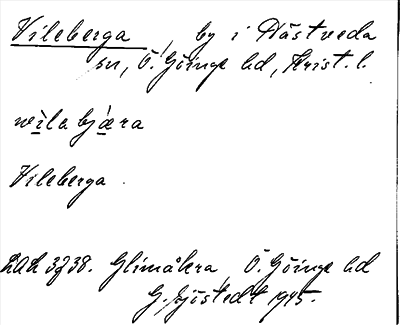 Vileberga, by i Nästveda
sn, Ö. Göinge hd, Krist. l.
wìla bjæ̀ra
Vileberga.
Glimåkra, Ö. Göinge hd
G. Sjöstedt 1945.